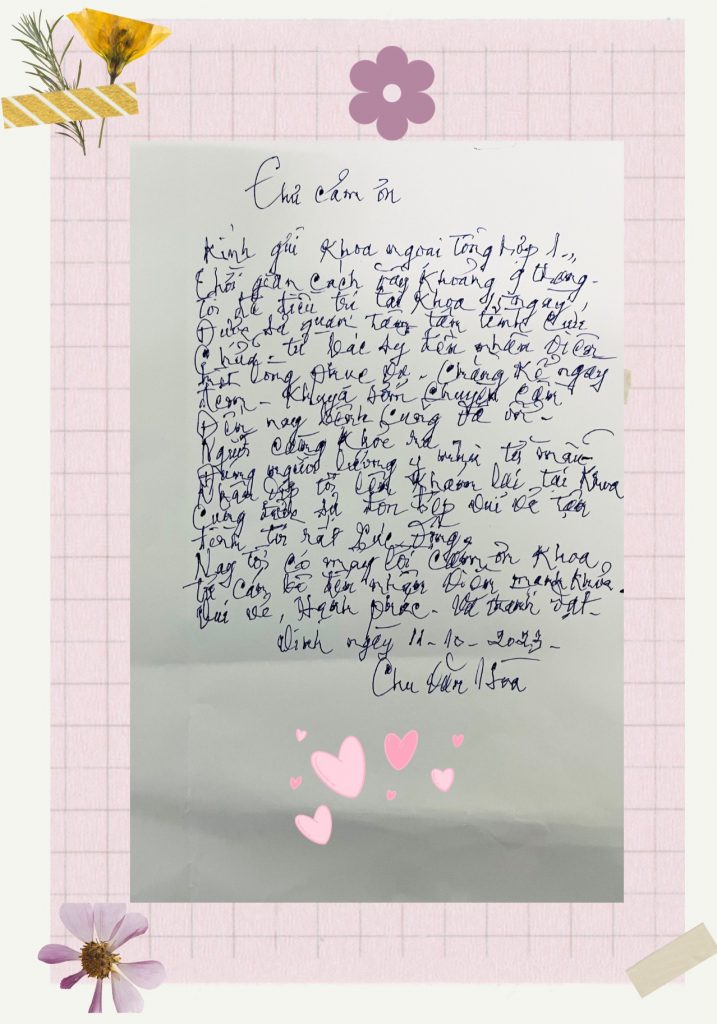 Thư cảm ơn
Kính gửi Khoa ngoại tổng hợp 1.
Thời gian cách đây khoảng 9 tháng.
tôi đã điều trị tại Khoa 15 ngày
Được sự quan tâm tận tình cứu
Chữa. từ bác sỹ đến nhân viên
một lòng phục vụ. Chẳng kể ngày
đêm. Khuya sớm chuyên cần
Đến nay bệnh cũng đã ổn.
Người cũng khỏe ra
Đúng người lương y như từ mẫu
Nhân dịp tôi lên khám lại tại Khoa
Cũng được sự đón tiếp vui vẻ tận
tình tôi rất xúc động,
Nay tôi có mấy lời cảm ơn Khoa
từ cán bộ đến nhân viên mạnh khỏe.
Vui vẻ, Hạnh phúc. Và thành đạt.
Vinh ngày 11-10-2023.
Chu Văn Hòa